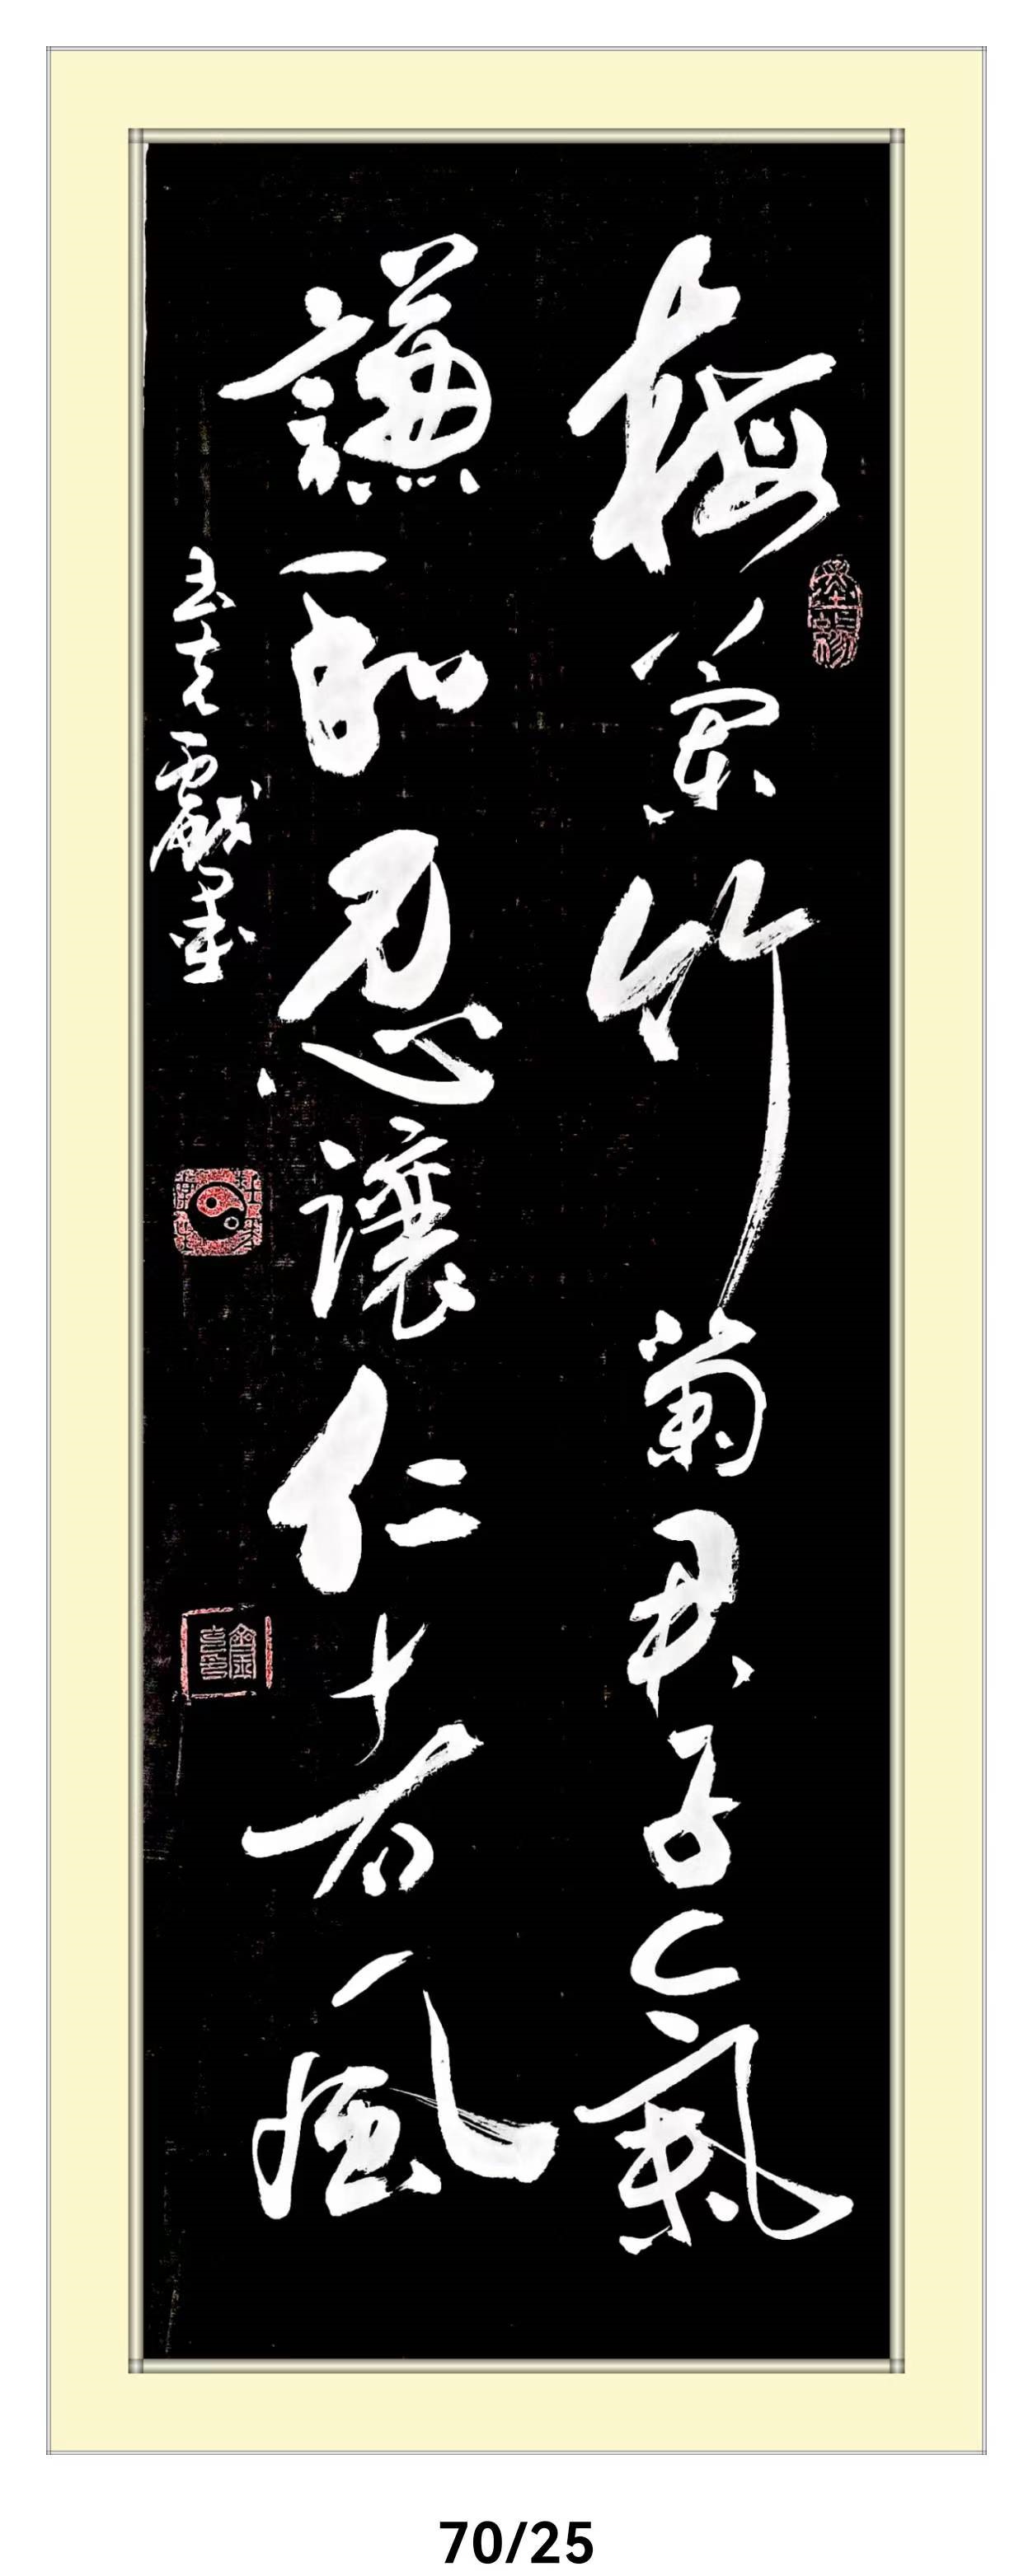 梅蘭竹菊君子氣
謙和忍讓仁者風
戲墨
70/25